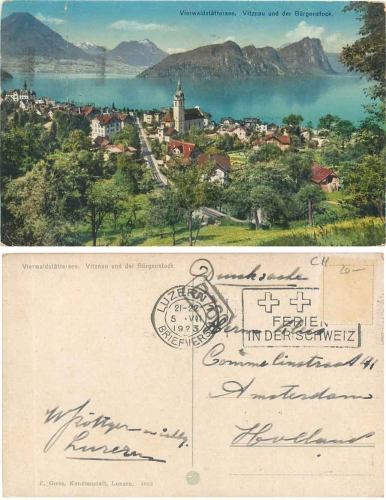 Vierwaldstättersee. Vitznau und der Bürgenstock.
Vierwaldstättersee. Vitznau und der Bürgenstock.
CH
20-
Drucksache
LUZERN
21-22
5 VII
1923
BRIEFVERSAND
FERIEN
IN DER SCHWEIZ
Commelinstraat 41
Amsterdam
Holland
Luzern
E. Goetz, Kunstanstalt, Luzern.